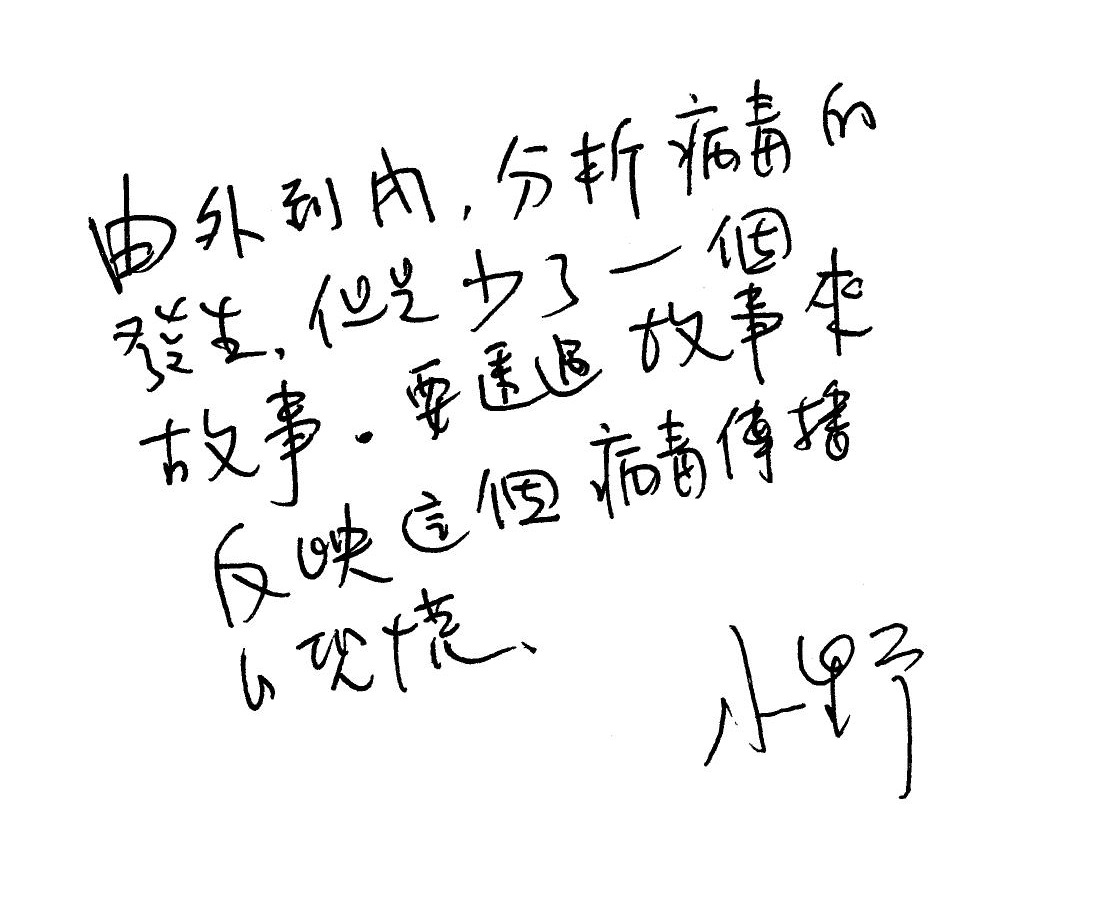 由外到內，分析病毒的
發生，但是少了一個
故事。要透過故事來
反映這個病毒傳播
的現慌、
小野